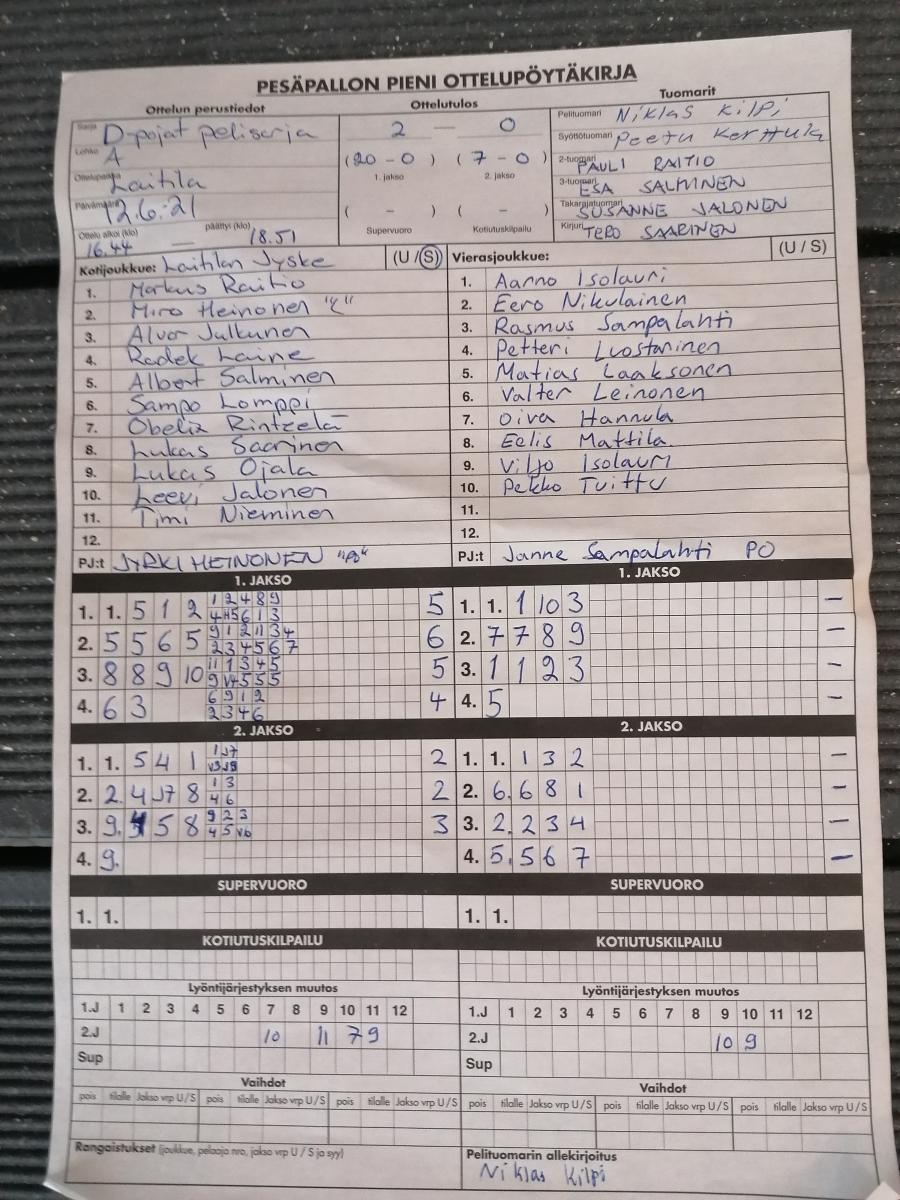 PESÄPALLON PIENI OTTELUPÖYTÄKIRJA
Ottelun perustiedot Ottelutulos Tuomarit
Sarja D-pojat pelisarja 2 — 0 Pelituomari Niklas Kilpi
Lohko A Syöttötuomari Peetu Kerttula
Ottelupaikka Laitila (20-0) (7-0) 2-tuomari PAULI RAITIO
1. jakso 2. jakso 3-tuomari ESA SALMINEN
Päivämäärä 12.6.21 ( - ) ( - ) Takarajatuomari SUSANNE JALONEN
Ottelu alkoi (klo) 16.44 — päättyi (klo) 18.51 Supervuoro Kotiutuskilpailu Kirjuri TERO SAARINEN
Kotijoukkue: Laitilan Jyske (U/S) Vierasjoukkue: (U / S)
1. Markus Raitio 1. Aarno Isolauri
2. Miro Heinonen 2. Eero Nikulainen
3. Alvar Julkunen 3. Rasmus Sampalahti
4. Radek Laine 4. Petteri Luostarinen
5. Albert Salminen 5. Matias Laaksonen
6. Sampo Lomppi 6. Valter Leinonen
7. Obelix Rintzelä 7. Oiva Hannula
8. Lukas Saarinen 8. Eelis Mattila
9. Lukas Ojala 9. Viljo Isolauri
10. Leevi Jalonen 10. Pekko Tuittu
11. Timi Nieminen 11.
12. 12.
PJ:t JYRKI HEINONEN PJ:t Janne Sampalahti PO
1. JAKSO 1. JAKSO
1. 1. 5 1 2 1 2 4 8 9 5 1. 1. 1 10 3 –
2. 5 5 6 5 9 1 2 11 3 4 2 3 4 5 6 7 6 2. 7 7 8 9 –
3. 8 8 9 10 11 1 3 4 5 5 3. 1 1 2 3 –
4. 6 3 6 9 1 2 2 3 4 6 4 4. 5 –
2. JAKSO 2. JAKSO
1. 1. 5 4 1 2 1. 1. 1 3 2 –
2. 2. 4 J7 8 1 3 4 6 2 2. 6. 6 8 1 –
3. 9. 5 8 9 2 3 4 5 V6 3 3. 2. 2 3 4 –
4. 9. 4. 5. 5 6 7 –
SUPERVUORO SUPERVUORO
1. 1. 1. 1.
KOTIUTUSKILPAILU KOTIUTUSKILPAILU
Lyöntijärjestyksen muutos Lyöntijärjestyksen muutos
1.J 1 2 3 4 5 6 7 8 9 10 11 12 1.J 1 2 3 4 5 6 7 8 9 10 11 12
2.J 10 11 7 9 2.J 10 9
Sup Sup
Vaihdot Vaihdot
pois tilalle Jakso vrp U/S pois tilalle Jakso vrp U/S pois tilalle Jakso vrp U/S pois tilalle Jakso vrp U/S pois tilalle Jakso vrp U/S pois tilalle Jakso vrp U/S
Rangaistukset (joukkue, pelaaja nro, jakso vrp U / S ja syy) Pelituomarin allekirjoitus
Niklas Kilpi